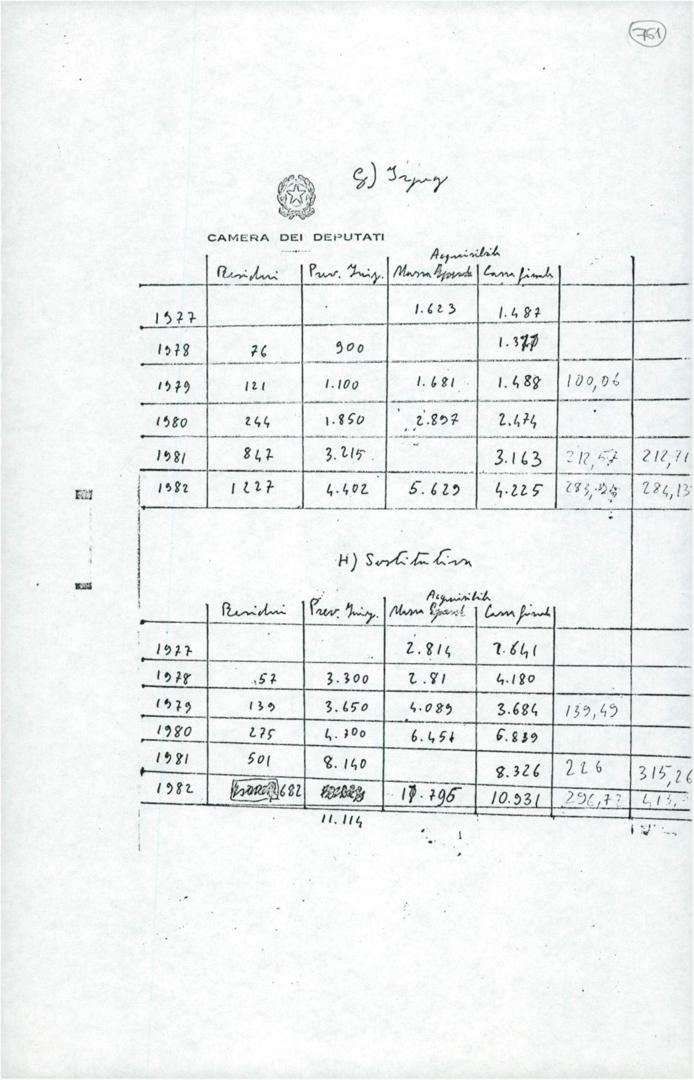 761
G) Irpeg
CAMERA DEI DEPUTATI
Acquisibile
Residui Prev. Imp. Massa Spend. Cassa finale
1977 1.623 1.487
1978 76 900
1979 121 1.100 1.681 1.488 100,06
1980 244 1.850 2.897 2.474
1981 847 3.215 3.163 212,57 212,71
1982 1227 4.402 5.629 4.225 284,13
H) Sostitutiva
Acquisibile
Residui Prev. Imp. Massa Spend. Cassa finale
1977 2.814 2.641
1978 57 3.300 2.81 4.180
1979 139 3.650 4.089 3.684 139,49
1980 275 4.700 6.451 6.839
1981 501 8.140 8.326 226 315,26
1982 682 11.796 10.931 296,77
11.114